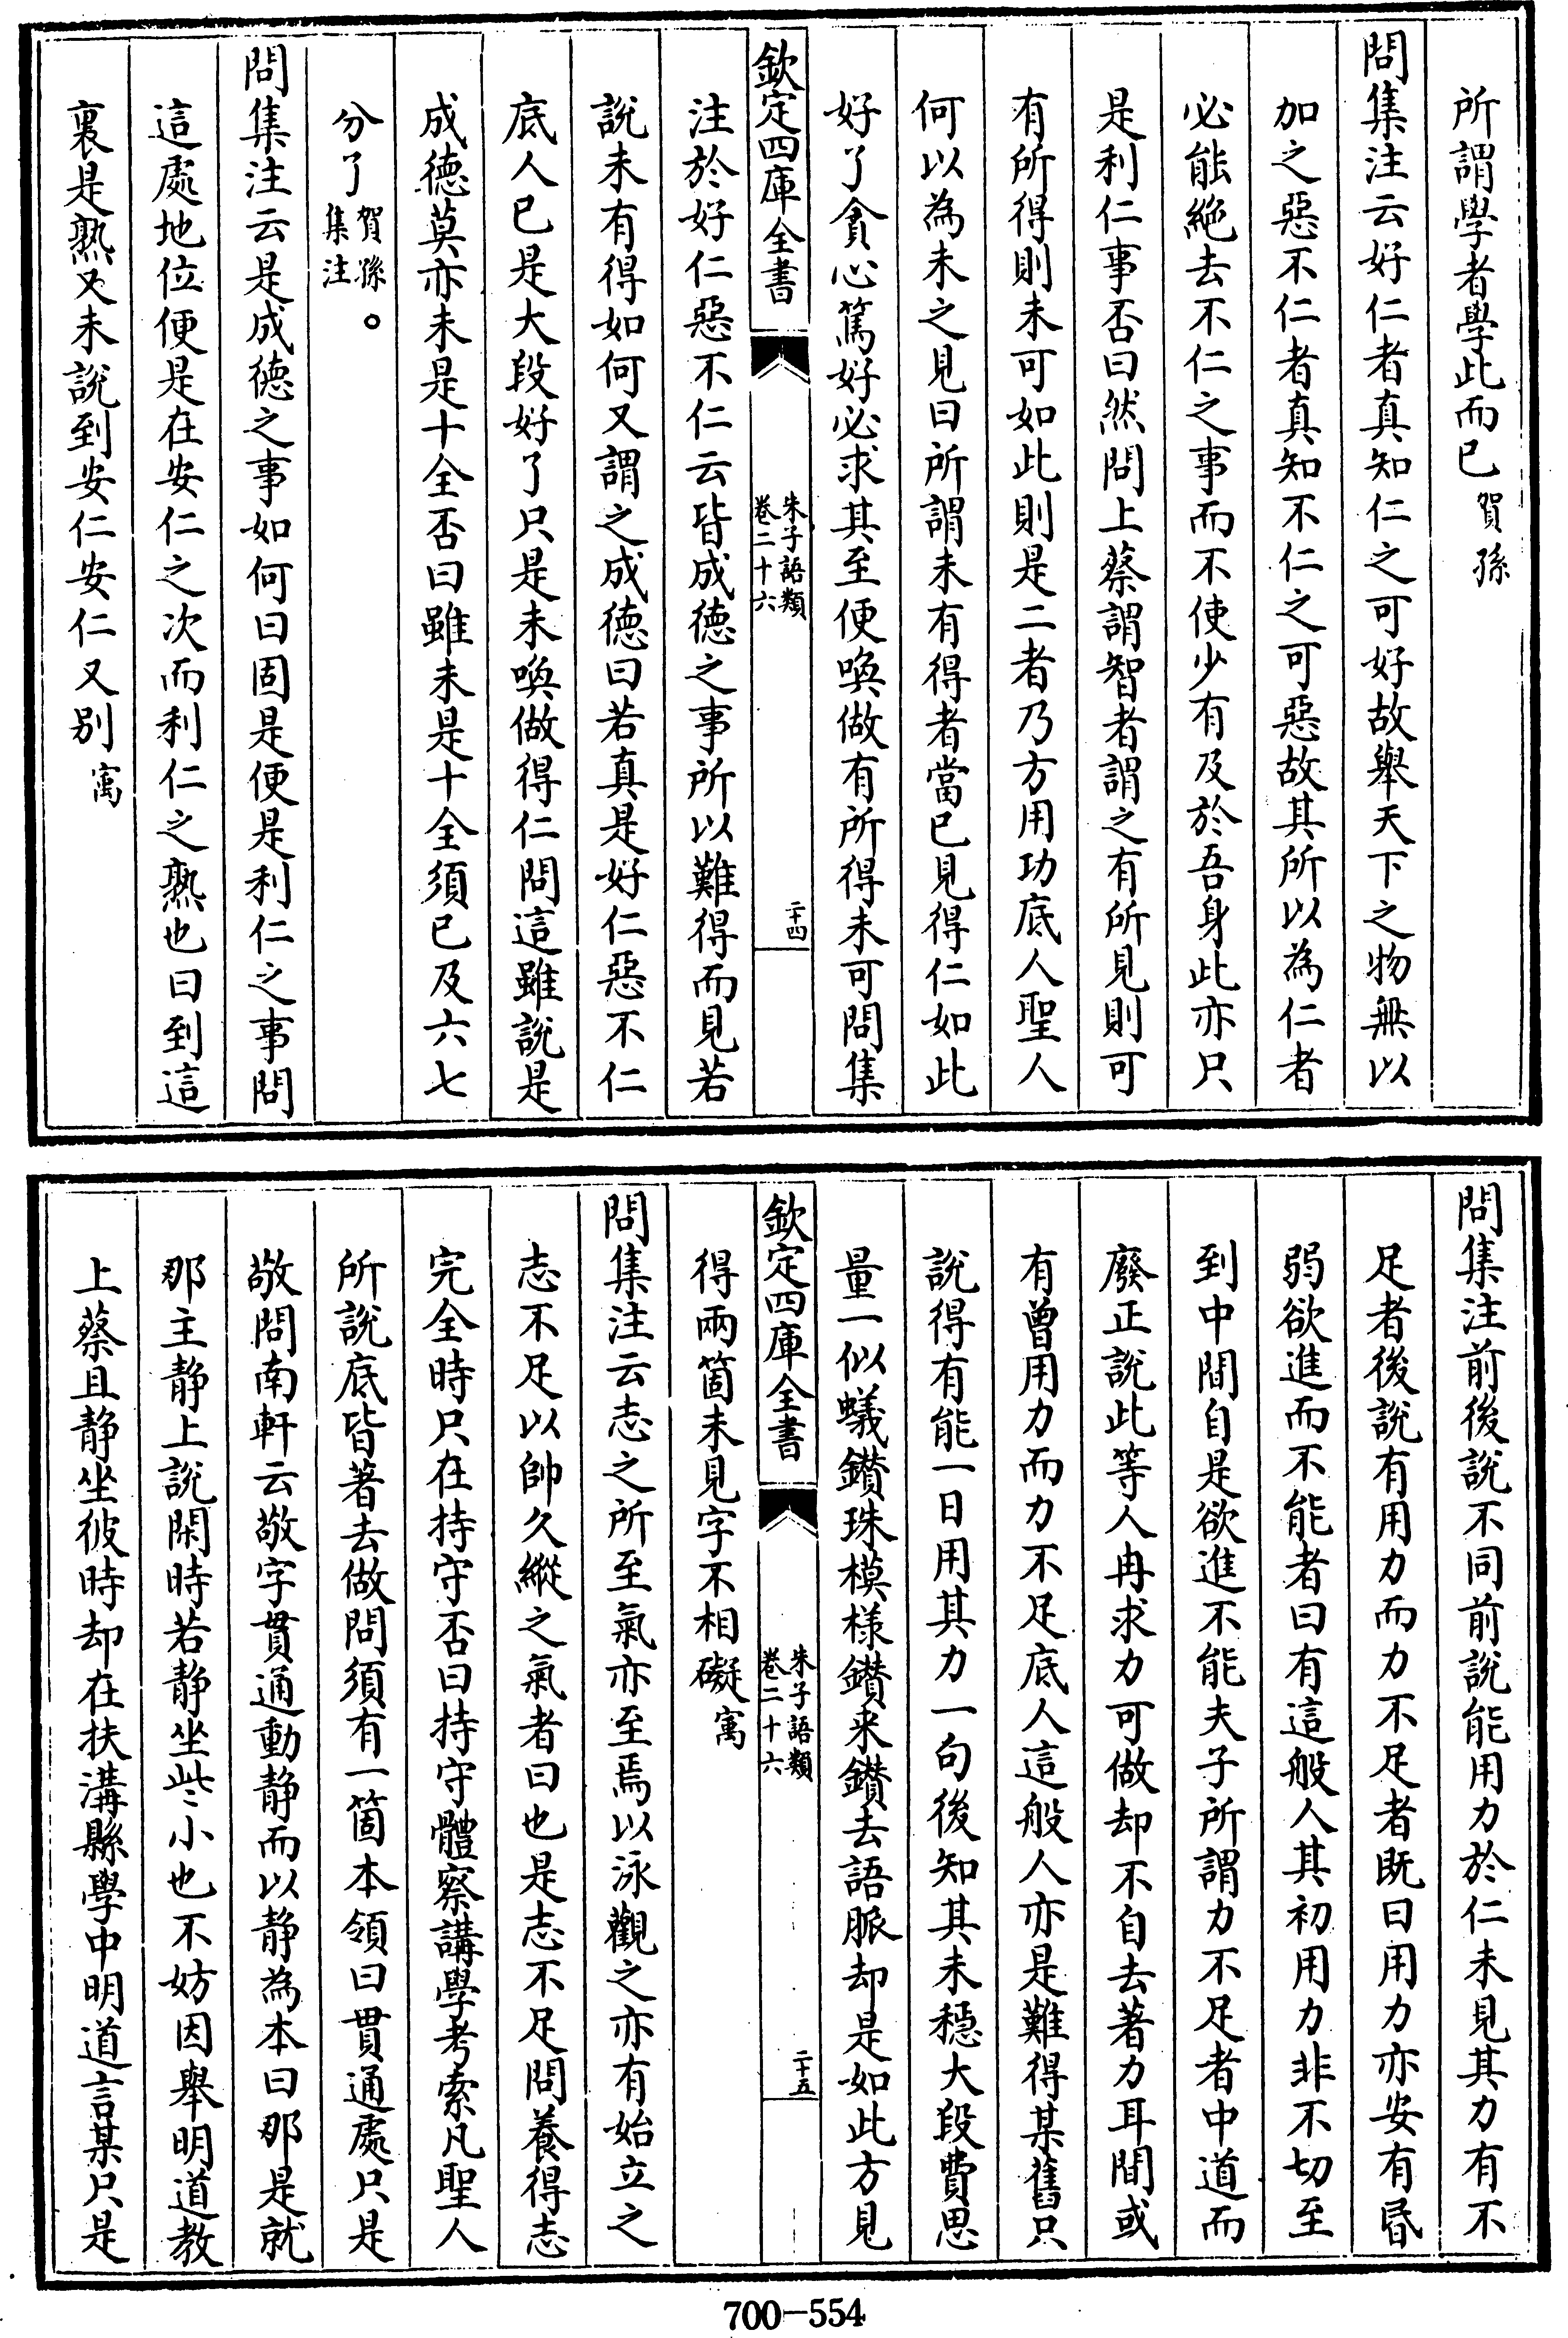 所謂學者學此而已賀孫
問集注云好仁者真知仁之可好故舉天下之物無以
加之惡不仁者真知不仁之可惡故其所以為仁者
必能絶去不仁之事而不使少有及於吾身此亦只
是利仁事否曰然問上蔡謂智者謂之有所見則可
有所得則未可如此則是二者乃方用功底人聖人
何以為未之見曰所謂未有得者當已見得仁如此
好了貪心篤好必求其至便喚做有所得未可問集
欽定四庫全書
朱子語類
卷二十六
二十四
注於好仁惡不仁云皆成德之事所以難得而見若
說未有得如何又謂之成德曰若真是好仁惡不仁
底人已是大段好了只是未喚做得仁問這雖說是
成德莫亦未是十全否曰雖未是十全須已及六七
分了賀孫。
集注
問集注云是成德之事如何曰固是便是利仁之事問
這處地位便是在安仁之次而利仁之熟也曰到這
裏是熟又未說到安仁安仁又別㝢
問集注前後說不同前說能用力於仁未見其力有不
足者後說有用力而力不足者既曰用力亦安有昬
弱欲進而不能者曰有這般人其初用力非不切至
到中間自是欲進不能夫子所謂力不足者中道而
廢正說此等人冉求力可做却不自去著力耳間或
有曾用力而力不足底人這般人亦是難得某舊只
說得有能一日用其力一句後知其未穩大段費思
量一似蟻鑚珠模樣鑚来鑚去語脈却是如此方見
欽定四庫全書
朱子語類
卷二十六
二十五
得兩箇未見字不相礙㝢
問集注云志之所至氣亦至焉以泳觀之亦有始立之
志不足以帥久縱之氣者曰也是志不足問養得志
完全時只在持守否曰持守體察講學考索凡聖人
所說底皆著去做問須有一箇本領曰貫通處只是
敬問南軒云敬字貫通動静而以静為本曰那是就
那主静上說閑時若静坐些小也不妨因舉明道教
上蔡且静坐彼時却在扶溝縣學中明道言某只是
700-554